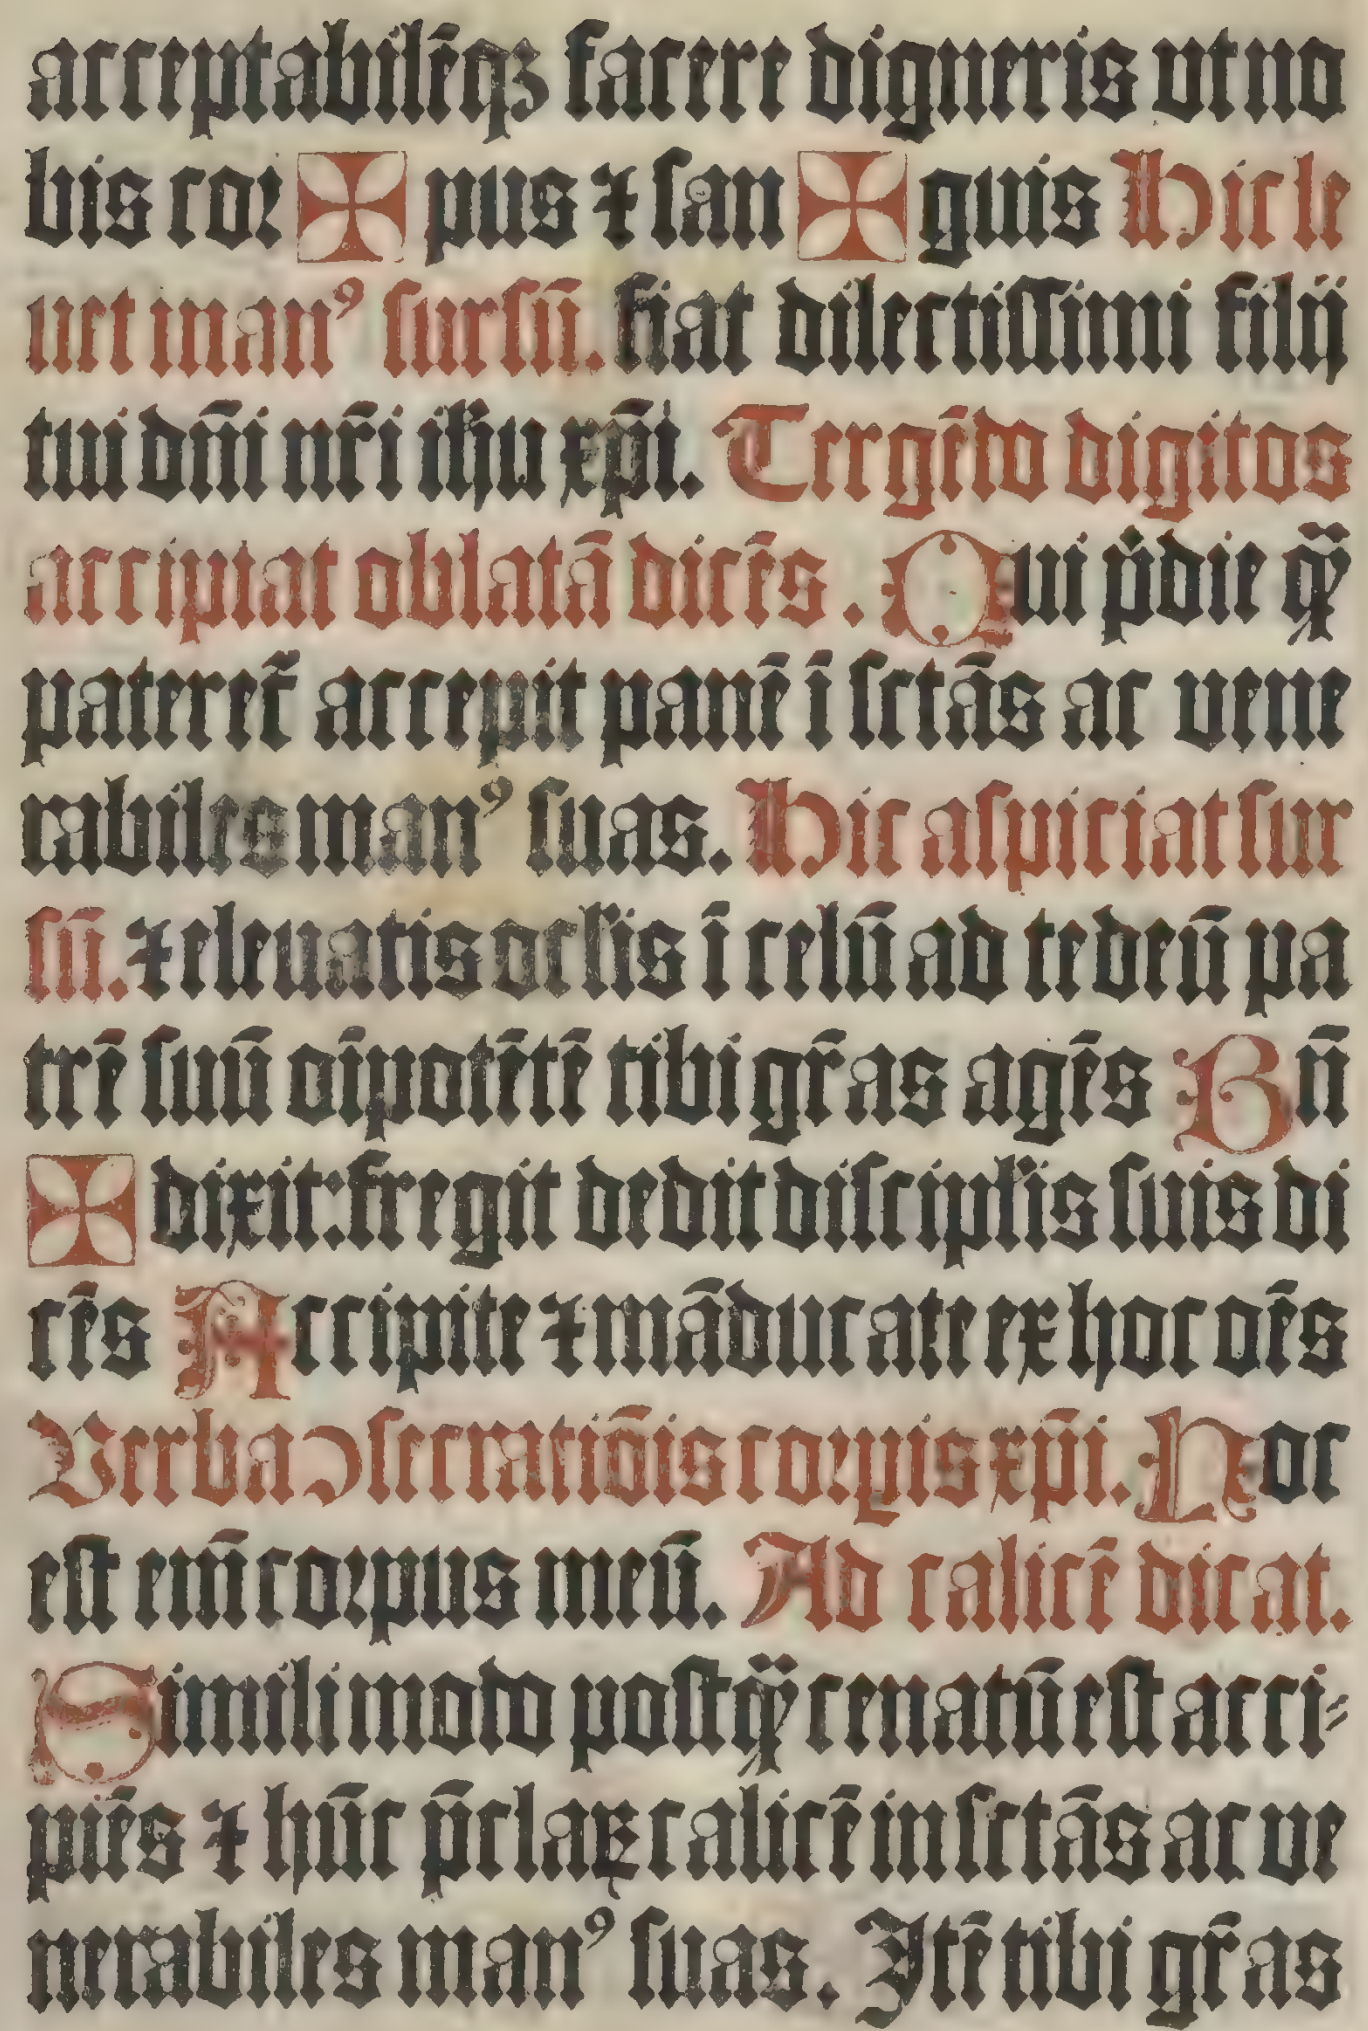 acceptabilēqꝫ facere digneris vt no
bis coꝛ ✠ pus ⁊ ſan ✠ guis Hic le
uet manꝰ ſurſū. fiat dilectiſſimi filij
tui dn̄i nr̄i ihu xp̄i. Tergēdo digitos
accipiat oblatā dicēs. Qui p̍die qͣ̄
pateret᷑ accepit panē ī ſctās ac vene
rabiles manꝰ ſuas. Hic aſpiciat ſur
ſū. ⁊ eleuatis oclis ī celū ad te deū pa
trē ſuū oīpotētē tibi gr̄as agēs Bn̄
✠ dixit: fregit dedit diſciplis ſuis di
cēs Accipite ⁊ māducate ex hoc oēs
Verba ↄſecratiōis coꝛpis xp̄i. Hoc
eſt em̄ coꝛpus meū. Ad calicē dicat.
Simili modo poſtqͣ̄ cenatū eſt acci⸗
piēs ⁊ hūc p̄claꝝ calicē in ſctās ac ve
nerabiles manꝰ ſuas. Itē tibi gr̄as